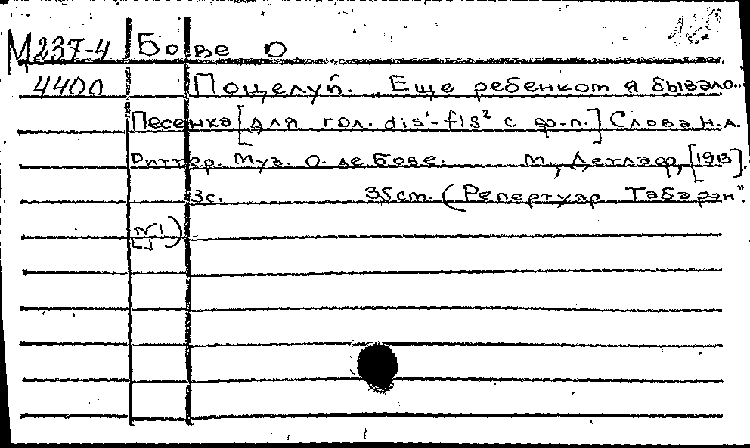 М237-4 Бове О
4400 Поцелуй. „Еще ребенком я бывало..."
Песенка [для гол. dis¹-fis² с ф-п.] Слова Н.А.
Риттер. Муз. О. де Бове. М., Детлаф, [1913].
3с. 35cm. (Репертуар „Табарэн".
№1)